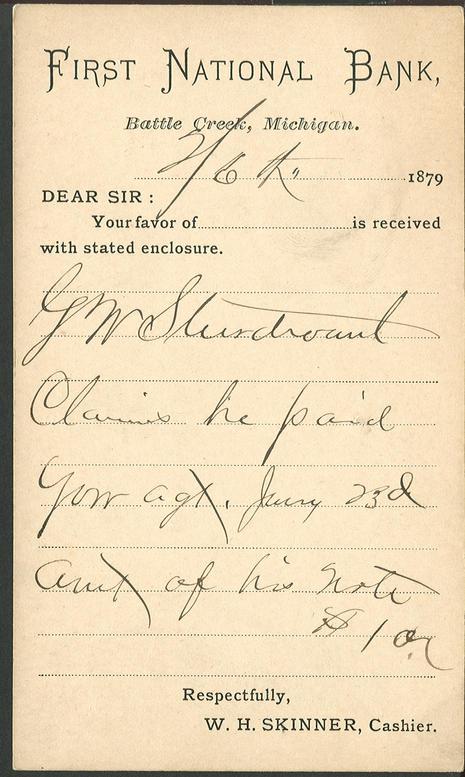 FIRST NATIONAL BANK,
Battle Creek, Michigan.
2/6 1879
DEAR SIR :
Your favor of is received
with stated enclosure.
G W Sturdivant
Claims he paid
your agt. Jany 23d
amt of his note
$ 10
Respectfully,
W. H. SKINNER, Cashier.